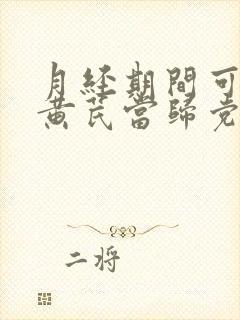 月经期間可
黄芪當歸党
二将